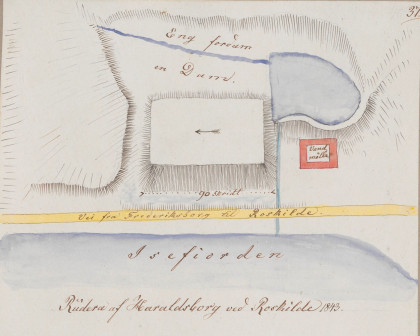 37
Eng forhum
en Dam.
Vand
mølle
90 skridt
Vei fra Frederiksborg til Roskilde.
Isefiorden
Rudera af Haraldsborg ved Roskilde 1843.